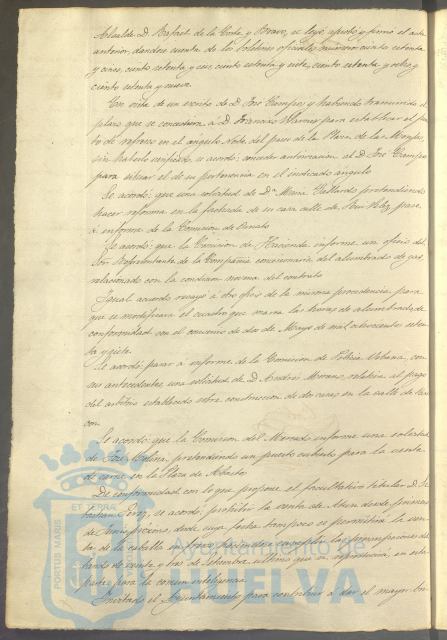 Alcalde D. Rafael de la Corte y Bravo, se leyó, aprobó y firmó el acta
anterior, dandose cuenta de los boletines oficiales número ciento setenta
y cinco, ciento setenta y seis, ciento setenta y siete, ciento setenta y ocho y
ciento setenta y nueve.
En vista de un escrito de D. José y habiendo transcurrido el
plazo que se concediera a D. Francisco para establecer el pues-
to de refresco en el angulo Norte del paseo de la Plaza de las Monjas,
sin haberlo verificado, se acordó: conceder autorizacion al D. José
para situar el de su pertenencia en el indicado angulo
Se acordó: que una solicitud de Dª Maria Gallardo pretendiendo
hacer reforma en la fachada de su casa calle de pase
á informe de la Comision de Ornato
Se acordó: que la Comision de Hacienda informe un oficio del
Sor. Representante de la Compañia concesionaria del alumbrado de gas,
relacionado con la condicion novena del contrato
Igual acuerdo recayó á otro oficio de la misma procedencia para
que se modificara el cuadro que marca las horas de alumbrado, de
conformidad con el convenio de dos de Mayo de mil ochocientos seten-
ta y siete.
Se acordó: pasar á informe de la Comision de Policia Urbana, con
sus antecedentes, una solicitud de D. Andrés Moreno, relativa al pago
del arbitrio establecido sobre construccion de dos casas en la calle de
Se acordó: que la Comision del Mercado informe una solicitud
de José Molina, pretendiendo un puesto cubierto para la venta
de carne en la Plaza de Abasto
De conformidad con lo que propone el facultativo titular D.
se acordó: prohibir la venta de Atun desde primero
de Junio proximo, desde cuya fecha tampoco se permitirá la ven-
ta de la caballa
bando de veinte y tres de Setiembre ultimo que se reproducirá en esta
parte para la comun inteligencia.
Invitado el Ayuntamiento para contribuir a dar el mayor
PORTUS MARIS
ET TERRÆ
Ayuntamiento de
HUELVA